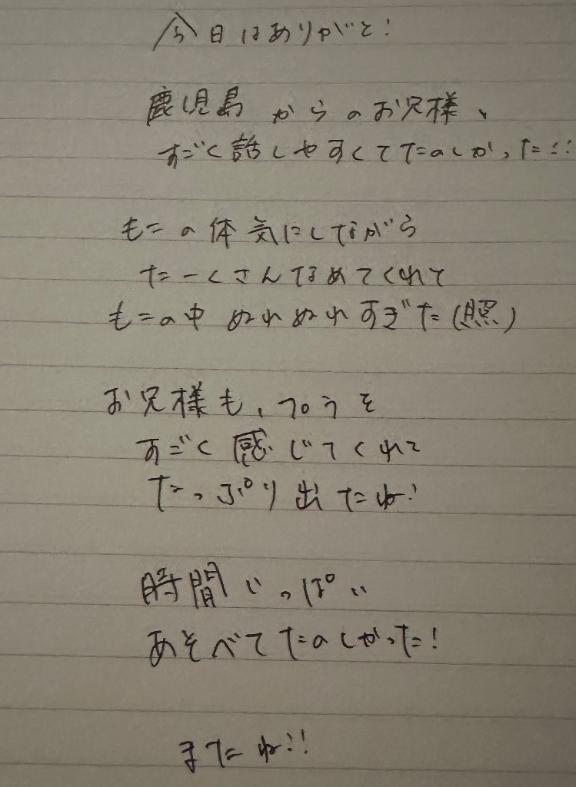 今日はありがと!
鹿児島からのお兄様、
すごく話しやすくてたのしかった!!
もこの体気にしながら
たーくさんなめてくれて
もこの中ぬれぬれすぎた(照)
お兄様も、フロうを
すごく感じてくれて
たっぷり出たね!
時間いっぱい
あそべてたのしかった!
またね!!